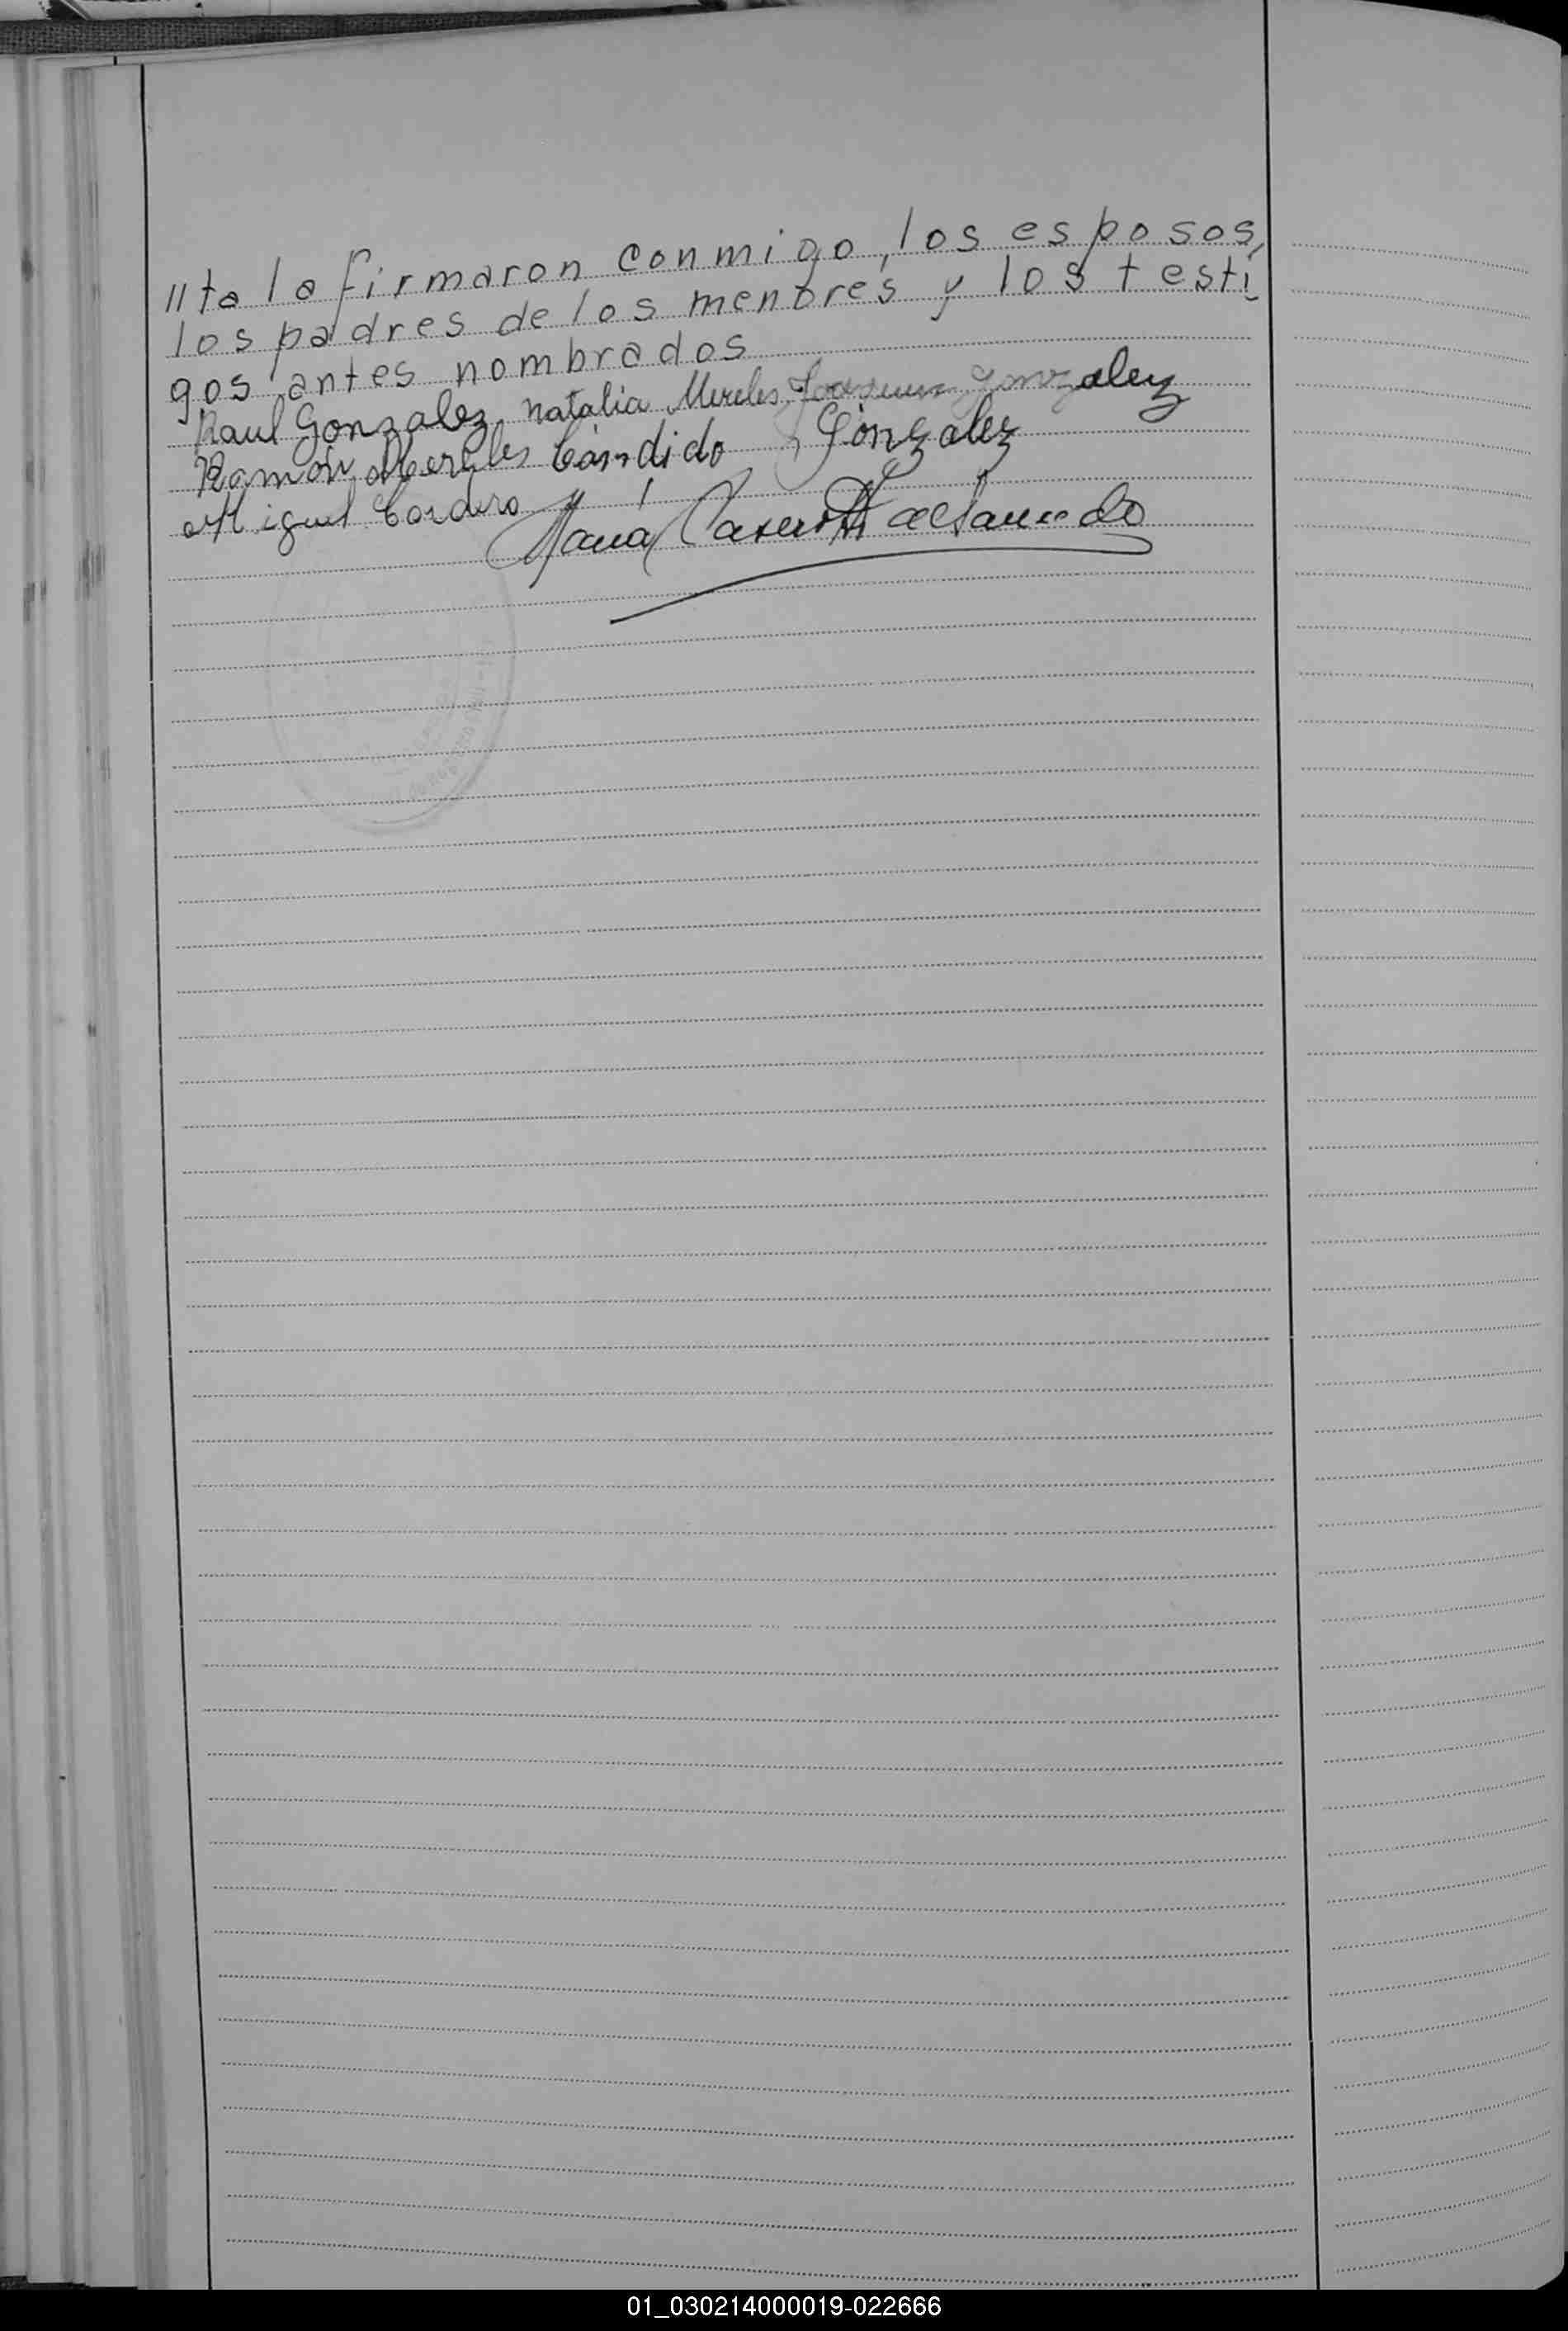 //ta la firmaron conmigo, los esposos,
los padres de los menores y los testi
gos antes nombrados
Raul Gonzalez Natalia Mireles Joaquin Gonzalez
Ramón Mereles Cándido Gonzalez
Miguel Cordero María
01_030214000019-022666